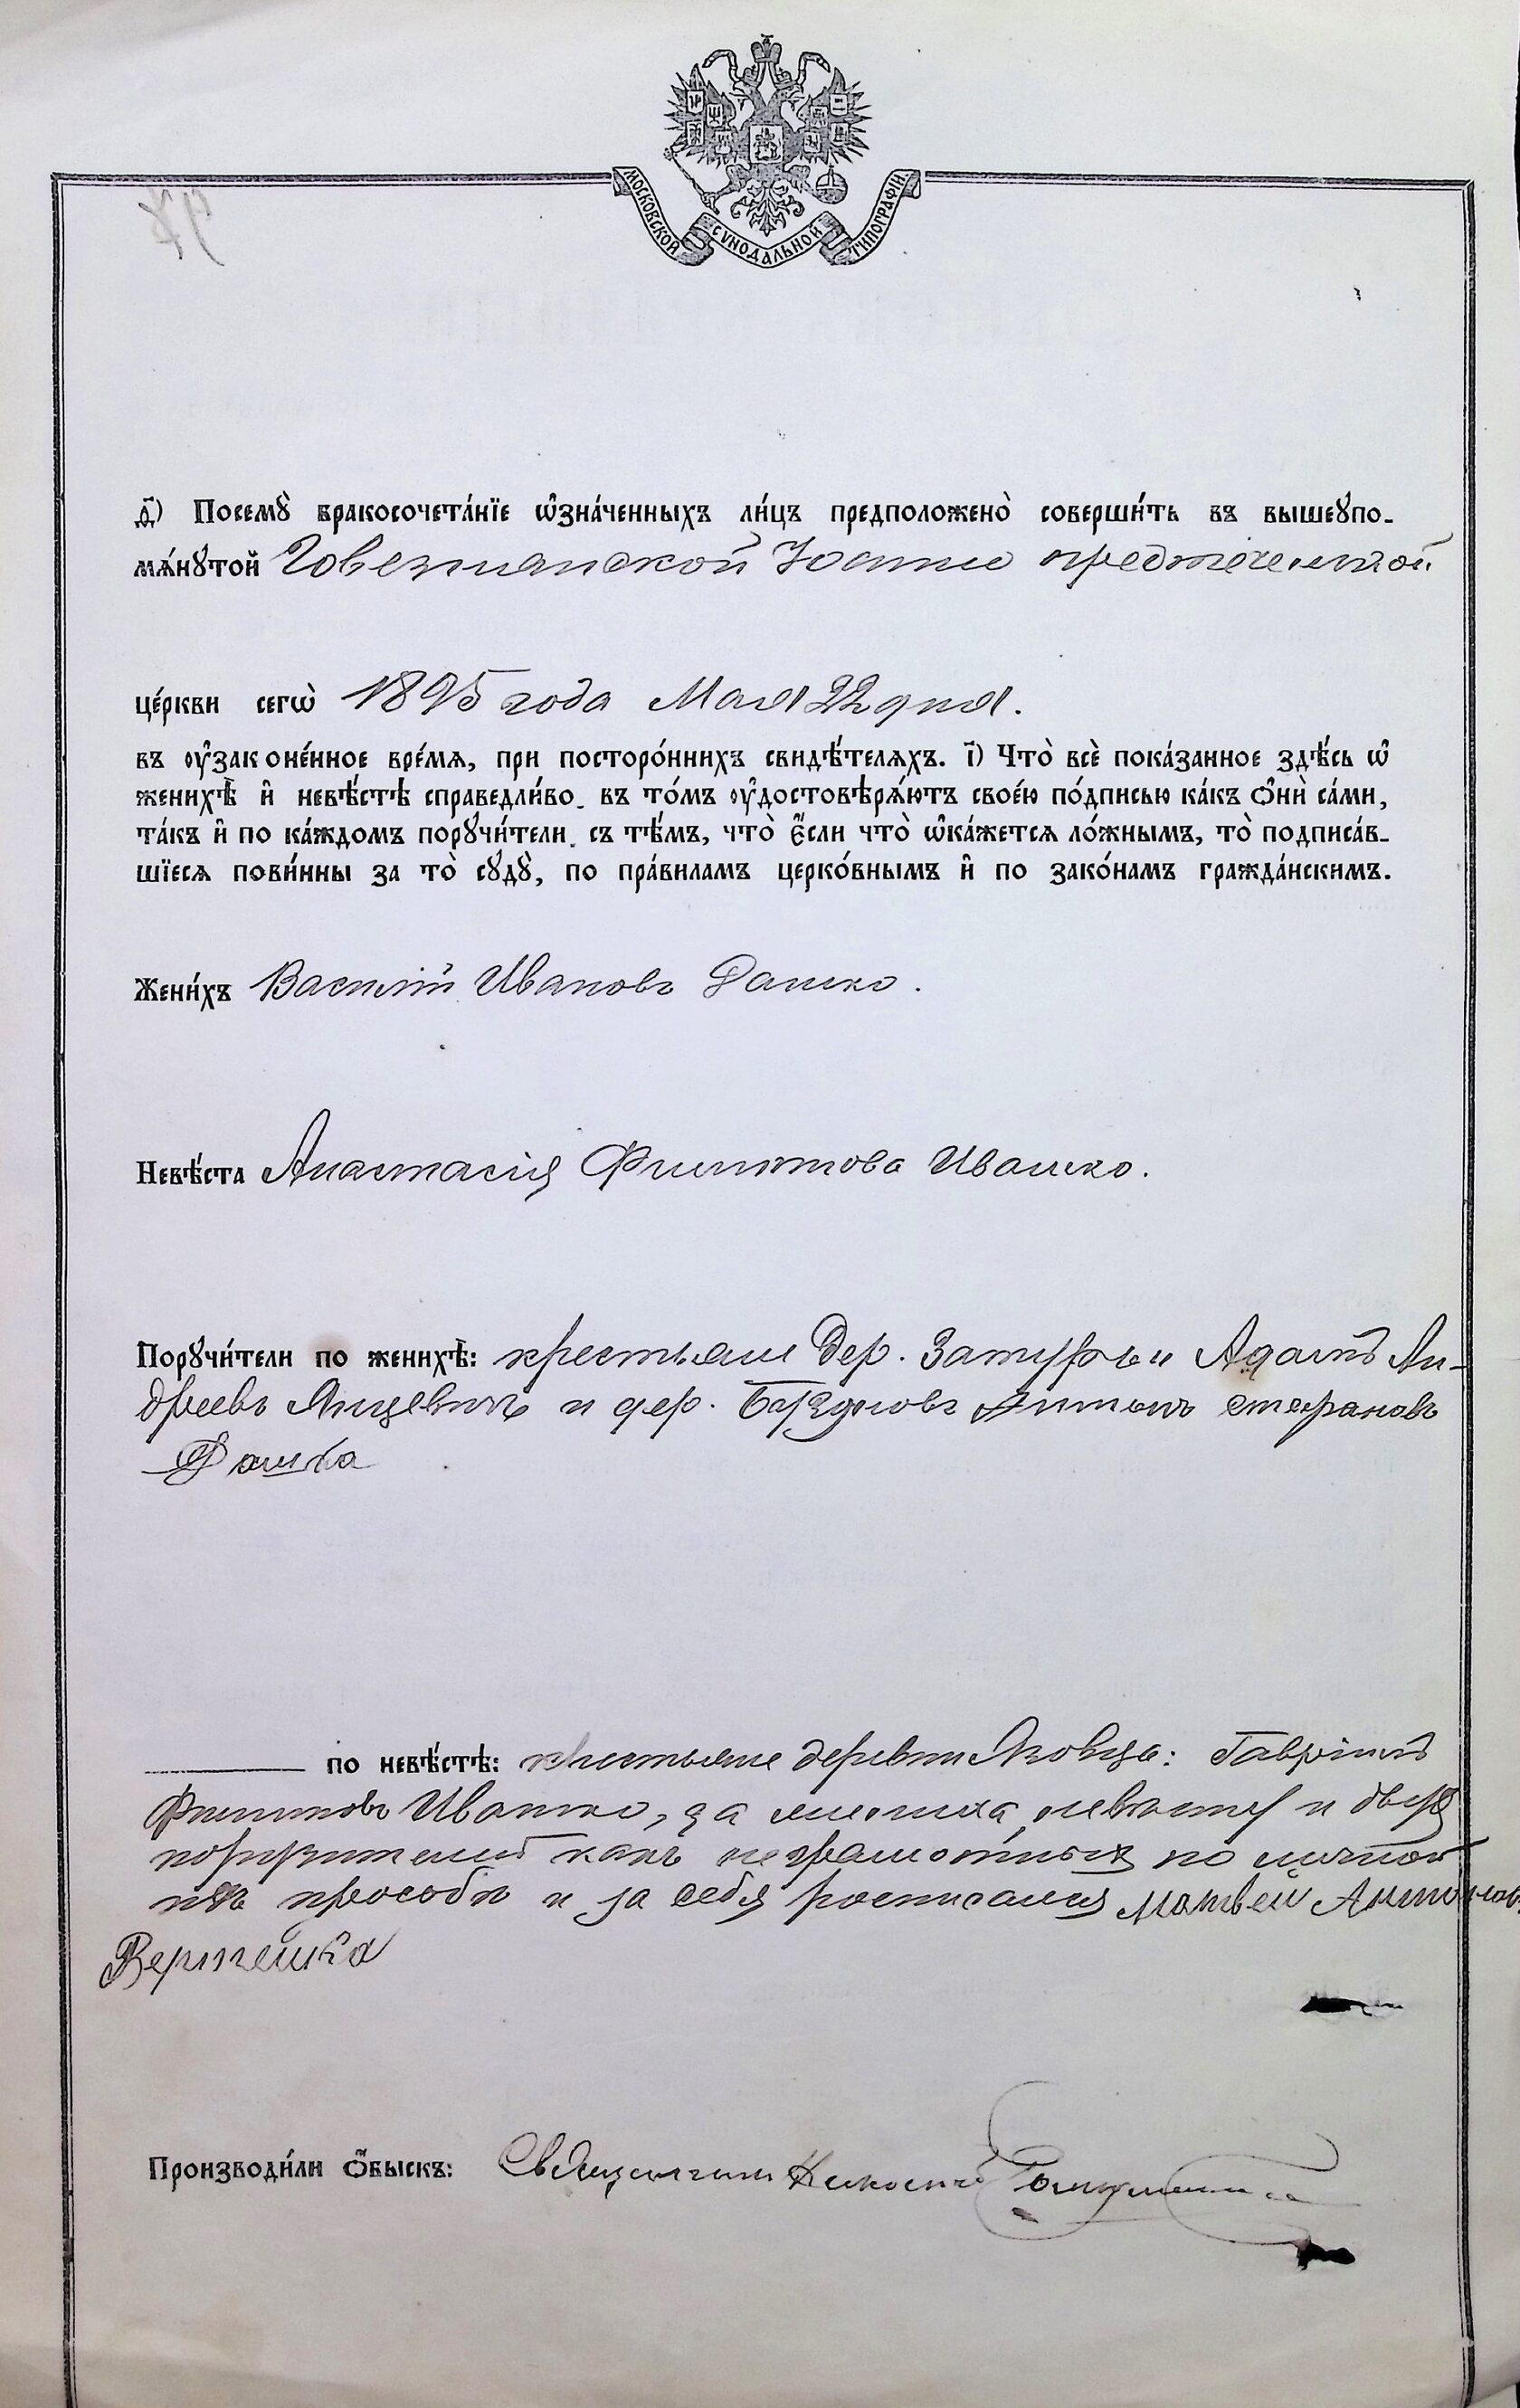 МОСКОВСКОЙ СѴНОДАЛЬНОЙ ТИПОГРАФІИ
д҃) Посемꙋ̀ бракосочета́нїе ѡ҆зна́ченныхъ ли́цъ предположено̀ соверши́ть въ вышеꙋпо-
мѧ́нꙋтой Говезнянской Іоанно предтеченской
це́ркви сегѡ̀ 1895 года Мая 22 дня.
въ ᲂу҆законе́нное вре́мѧ, при посторо́ннихъ свидѣ́телѧхъ. і҃) Что̀ всѐ пока́занное здѣ́сь ѡ҆
женихѣ̀ и҆ невѣ́стѣ справедли́во, въ то́мъ ᲂу҆достовѣрѧ́ютъ свое́ю по́дписью ка́къ ѻ҆нѝ са́ми,
та́къ и҆ по ка́ждомъ порꙋчи́тели, съ тѣ́мъ, что̀ є҆́сли что̀ ѡ҆ка́жетсѧ ло́жнымъ, то̀ подписа́в-
шїесѧ пови́нны за то̀ сꙋдꙋ̀, по пра́виламъ церко́внымъ и҆ по зако́намъ гражда́нскимъ.
Жени́хъ Василій Ивановъ Дашко.
Невѣ́ста Анастасія Филипова Ивашко.
Порꙋчи́тели по женихѣ̀: крестьяне дер. Затурьи Адамъ Ан-
дреевъ Янцевичъ и дер. Антонъ Стефановъ
Дашко
по невѣ́стѣ: крестьяне деревни Яковца: Гавріилъ
Филиповъ Ивашко, за жениха, невесту и двухъ
поручителей какъ неграмотныхъ по личной
ихъ прособи и за себя росписался Матвей Антонов
Вертейка
Производи́ли ѻ҆́быскъ: Священникъ